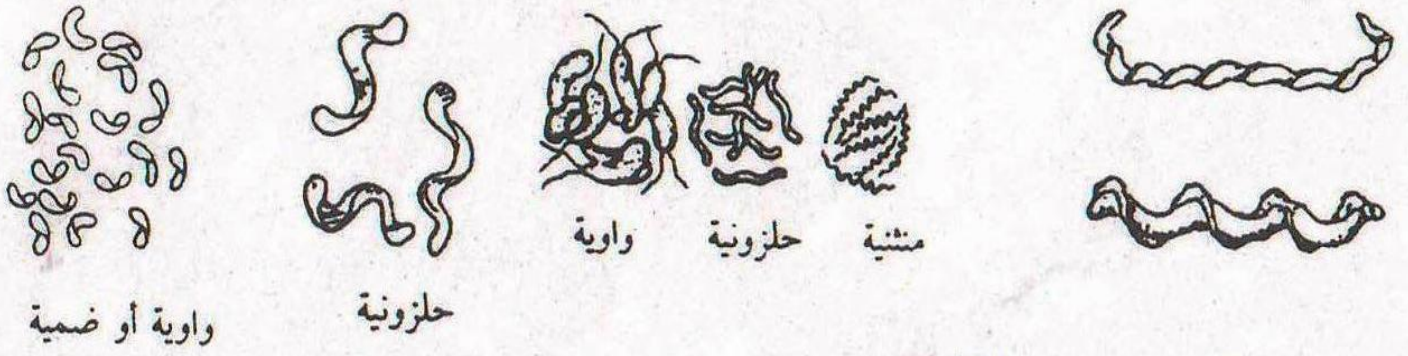 منثنية
حلزونية
واوية
حلزونية
واوية أو ضمية